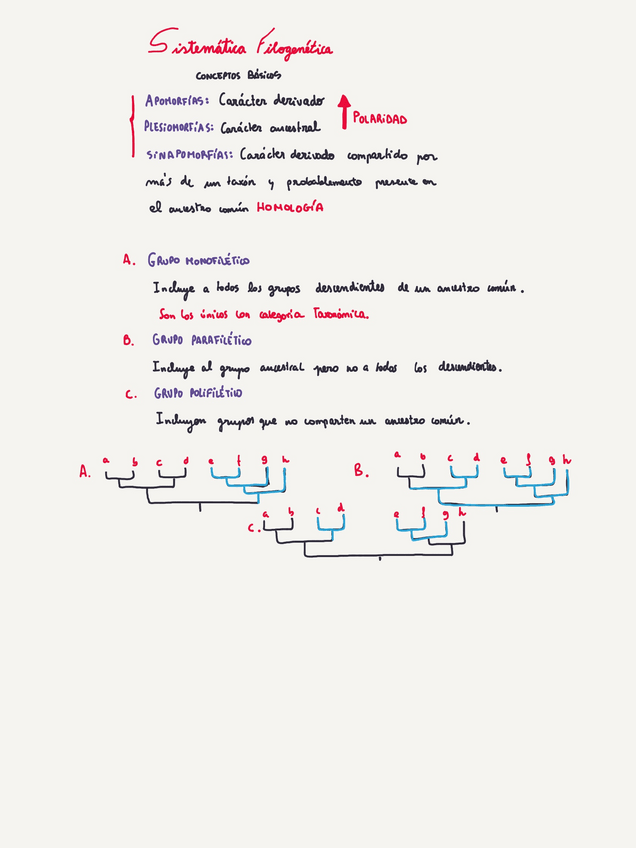 Sistemática Filogenética
CONCEPTOS BÁSICOS
APOMORFÍAS: Carácter derivado
PLESIOMORFÍAS: Carácter ancestral
POLARIDAD
SINAPOMORFÍAS: Carácter derivado compartido por
más de un taxón y probablemente presente en
el ancestro común HOMOLOGÍA
A. GRUPO MONOFILÉTICO
Incluye a todos los grupos descendientes de un ancestro común.
Son los únicos con categoría Taxonómica.
B. GRUPO PARAFILÉTICO
Incluye al grupo ancestral pero no a todos los descendientes.
C. GRUPO POLIFILÉTICO
Incluyen grupos que no comparten un ancestro común.
A. a b c d e f g h
B. a b c d e f g h
C. a b c d e f g h